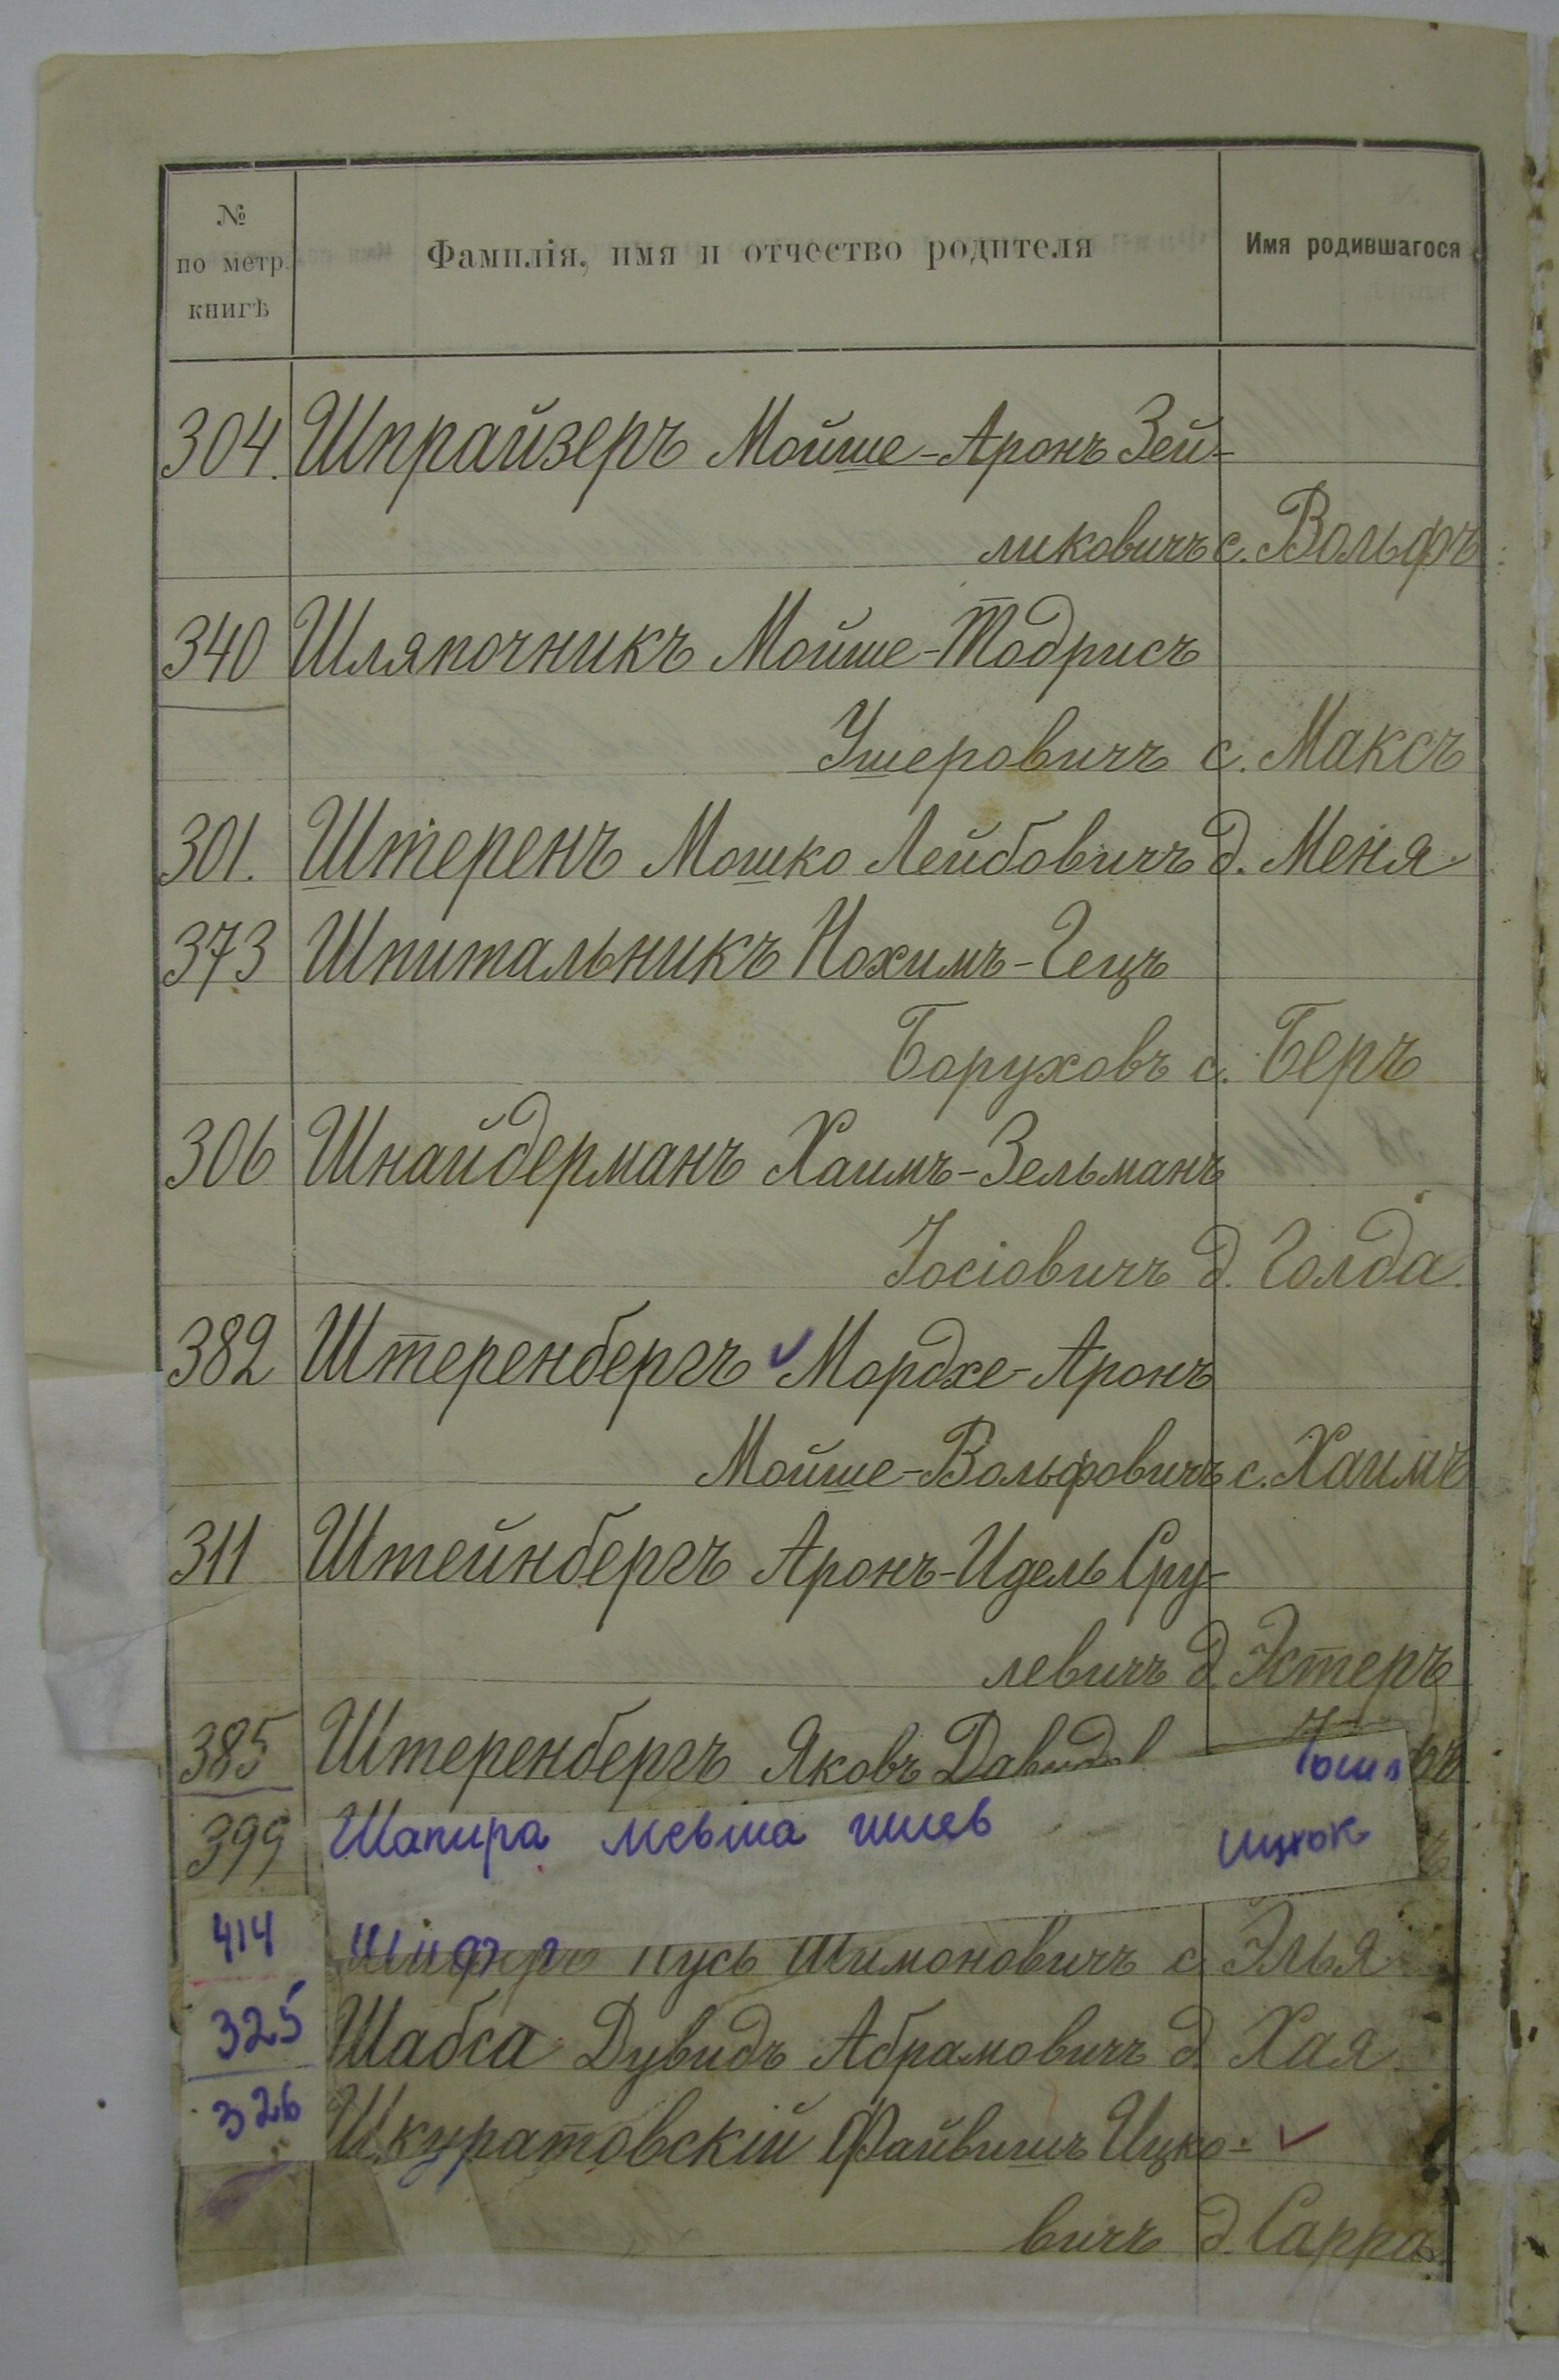 №
по метр.
книгѣ
Фамилія, имя и отчество родителя
Имя родившагося
304. Шпрайзеръ Мойше-Аронъ Зей-
ликовичъ с. Вольфъ
340 Шляпочникъ Мойше-Тодрисъ
Ушеровичъ с. Максъ
301. Штеренъ Мошко Лейбовичъ д. Меня
373 Шпитальникъ Нохимъ-Гецъ
Боруховъ с. Беръ
306 Шнайдерманъ Хаимъ-Зельманъ
Іосіовичъ д. Голда.
382 Штеренбергъ Мордхе-Аронъ
Мойше-Вольфовичъ с. Хаимъ
311 Штейнбергъ Аронъ-Идель Сру-
левичъ д. Эстеръ
385 Штеренбергъ Яковъ
399 Шапира ицхок
414 Нусь Шимоновичъ с. Элья
325 Шабса Дувидъ Абрамовичъ д. Хая
326 Шкуратовскій Файвишъ Ицко-
вичъ д. Сарра